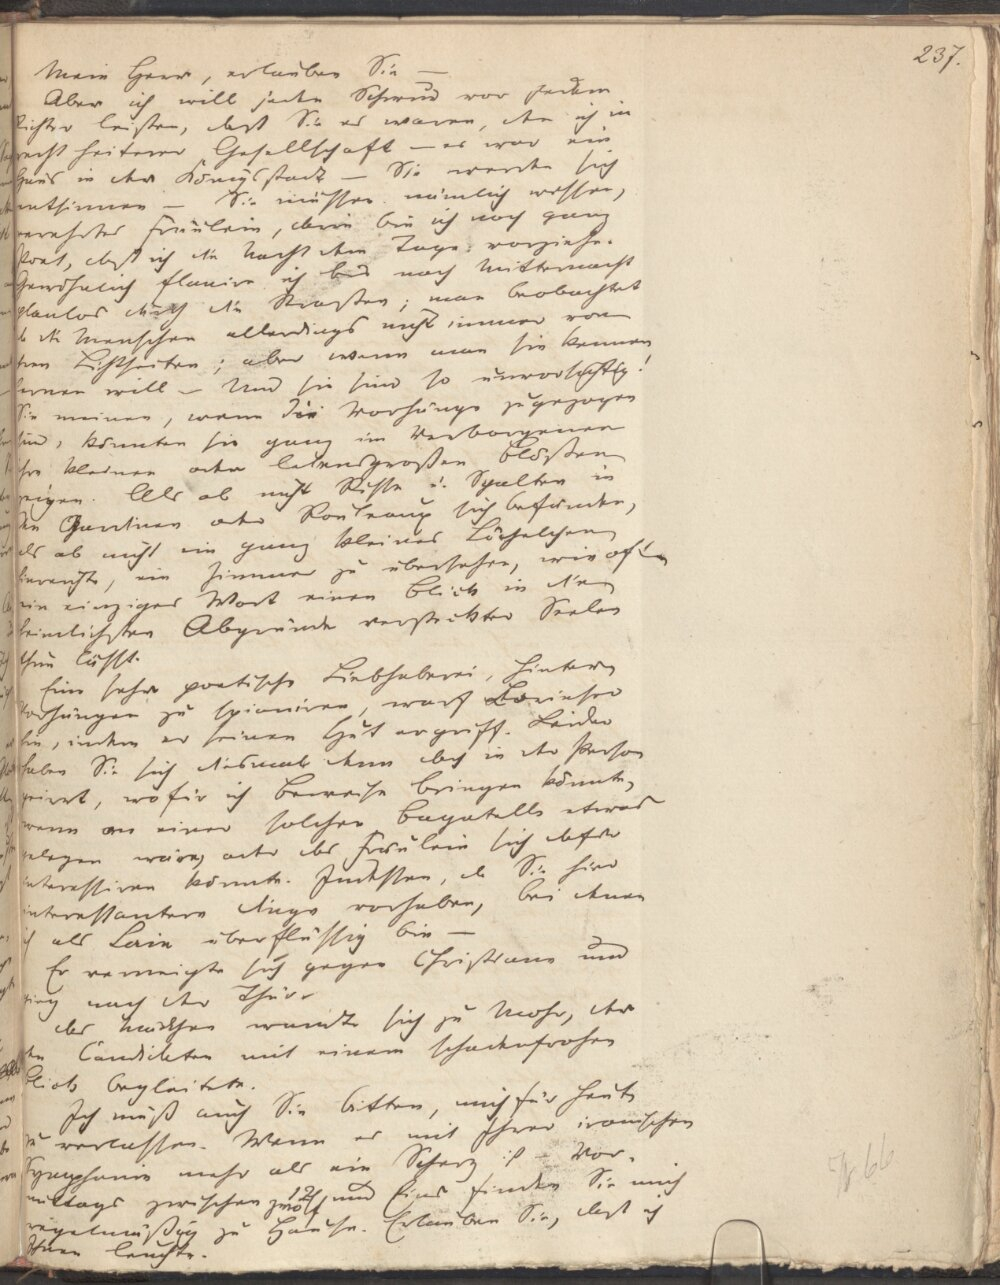 237.
Mein Herr, erlauben Sie —
Aber ich will jeden Schwur vor jedem
Richter leisten, daß Sie es waren, den ich in
recht heiterer Gesellschaft — es war ein
Haus in der Königsstadt — Sie werden sich
entsinnen — Sie müssen nämlich wissen,
verehrtes Fräulein, darin bin ich noch ganz
Poet, daß ich die Nacht dem Tage vorziehe.
Gewöhnlich flanire ich bis nach Mitternacht
planlos durch die Straßen; man beobachtet
da die Menschen allerdings nicht immer von
ihren Lichtseiten; aber wenn man sie kennen
lernen will — Und sie sind so unvorsichtig!
Sie meinen, wenn die Vorhänge zugezogen
sind, könnten sie ganz im Verborgenen
ihre kleinen oder lebensgroßen Blößen
zeigen. Als ob nicht Risse u. Spalten in
den Gardinen oder Rouleaux sich befänden,
als ob nicht ein ganz kleines Löchelchen
hinreichte, ein Zimmer zu übersehen, wie oft
ein einziges Wort einen Blick in die
heimlichsten Abgründe versteckter Seelen
thun läßt.
Eine sehr poetische Liebhaberei, hintern
Vorhängen zu spioniren, warf Lorinser
hin, indem er seinen Hut ergriff. Leider
haben Sie sich diesmal denn doch in der Person
geirrt, wofür ich Beweise bringen könnte,
wenn an einer solchen Bagatelle etwas
gelegen wäre, oder das Fräulein sich dafür
interessiren könnte. Indessen, da Sie hier
interessantere Dinge vorhaben, bei denen
ich als Laie überflüssig bin —
Er verneigte sich gegen Christiane und
ging nach der Thür.
Das Mädchen wandte sich zu Mohr, der
den Candidaten mit einem schadenfrohen
Blick begleitete.
Ich muß auch Sie bitten, mich für heute
zu verlassen. Wenn es mit Ihrer ironischen
Symphonie mehr als ein Scherz ist — Vor-
mittags zwischen zwölf 12 und Eins finden Sie mich
regelmäßig zu Hause. Erlauben Sie, daß ich
Ihnen leuchte.
66